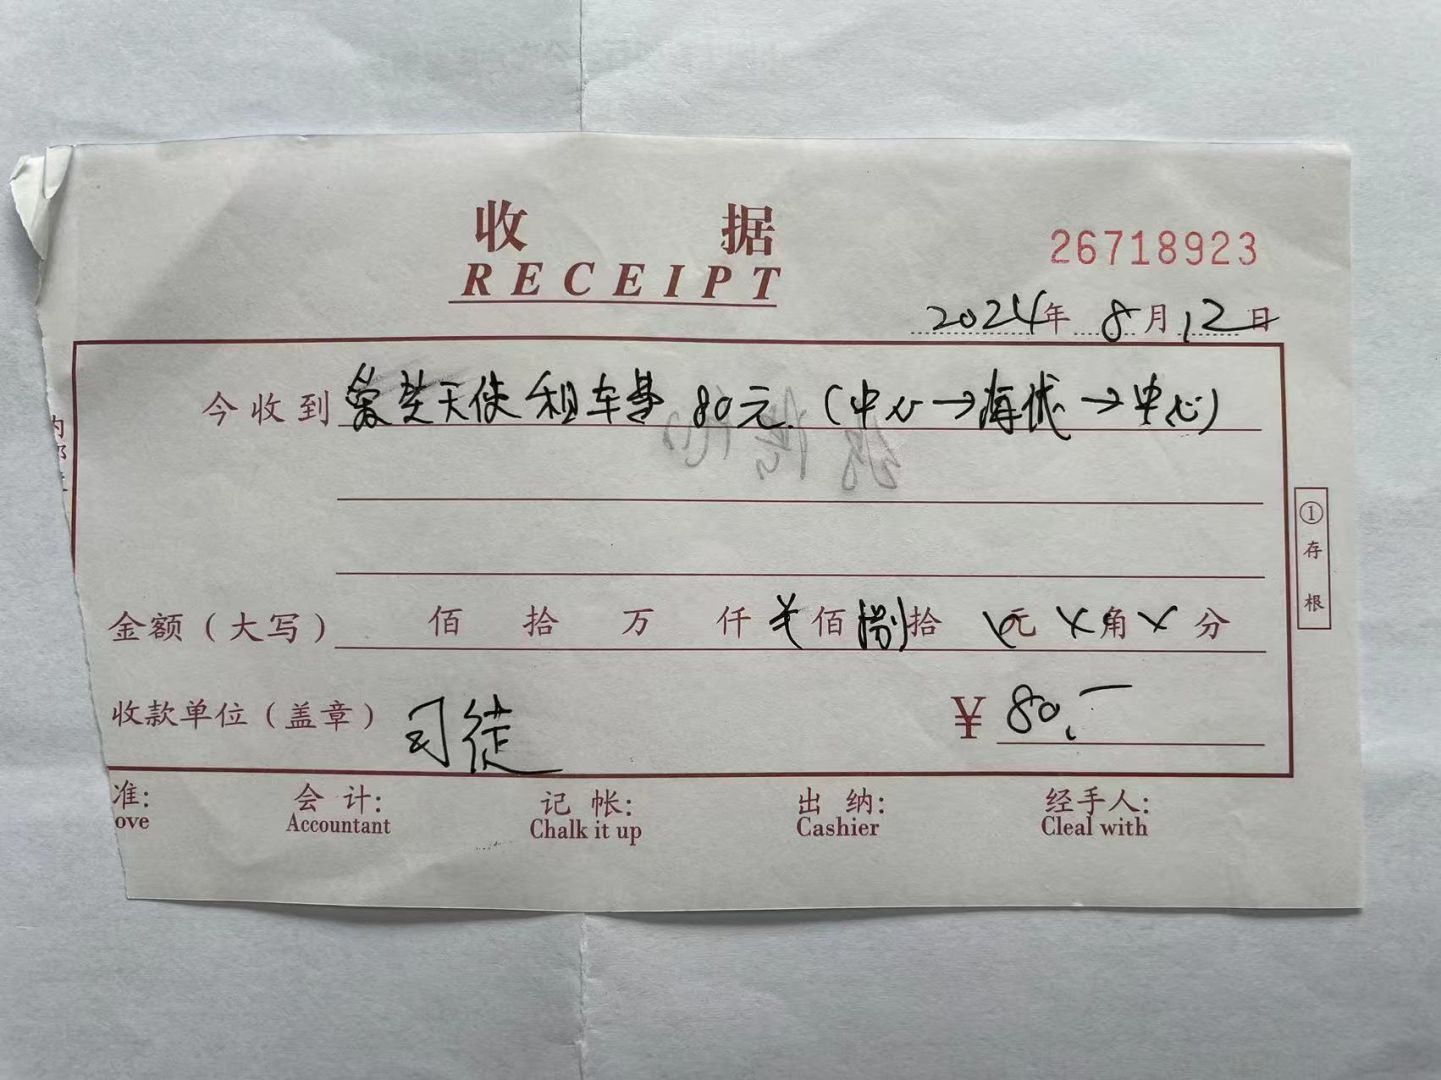 收 据
RECEIPT
26718923
2024年 8月12日
今收到 爱芝天使租车费 80元.(中心→海优→中心)
① 存根
金额(大写) 佰 拾 万 仟 ✗佰 捌拾 ✗元 ✗角 ✗分
收款单位(盖章) 司徒 ¥ 80.-
准: 会 计: 记 帐: 出 纳: 经手人:
ove Accountant Chalk it up Cashier Cleal with